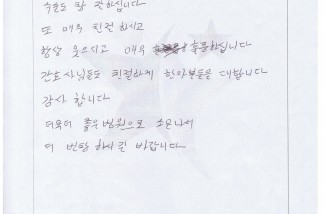 수술도 잘 하십니다
또 매우 친절 하시고
항상 웃으시고 매우 훌륭하십니다
간호사님들도 친절하게 환자분들을 대합니다
감사 합니다
더욱더 좋은 병원으로 소문나서
더 번창 하시길 바랍니다